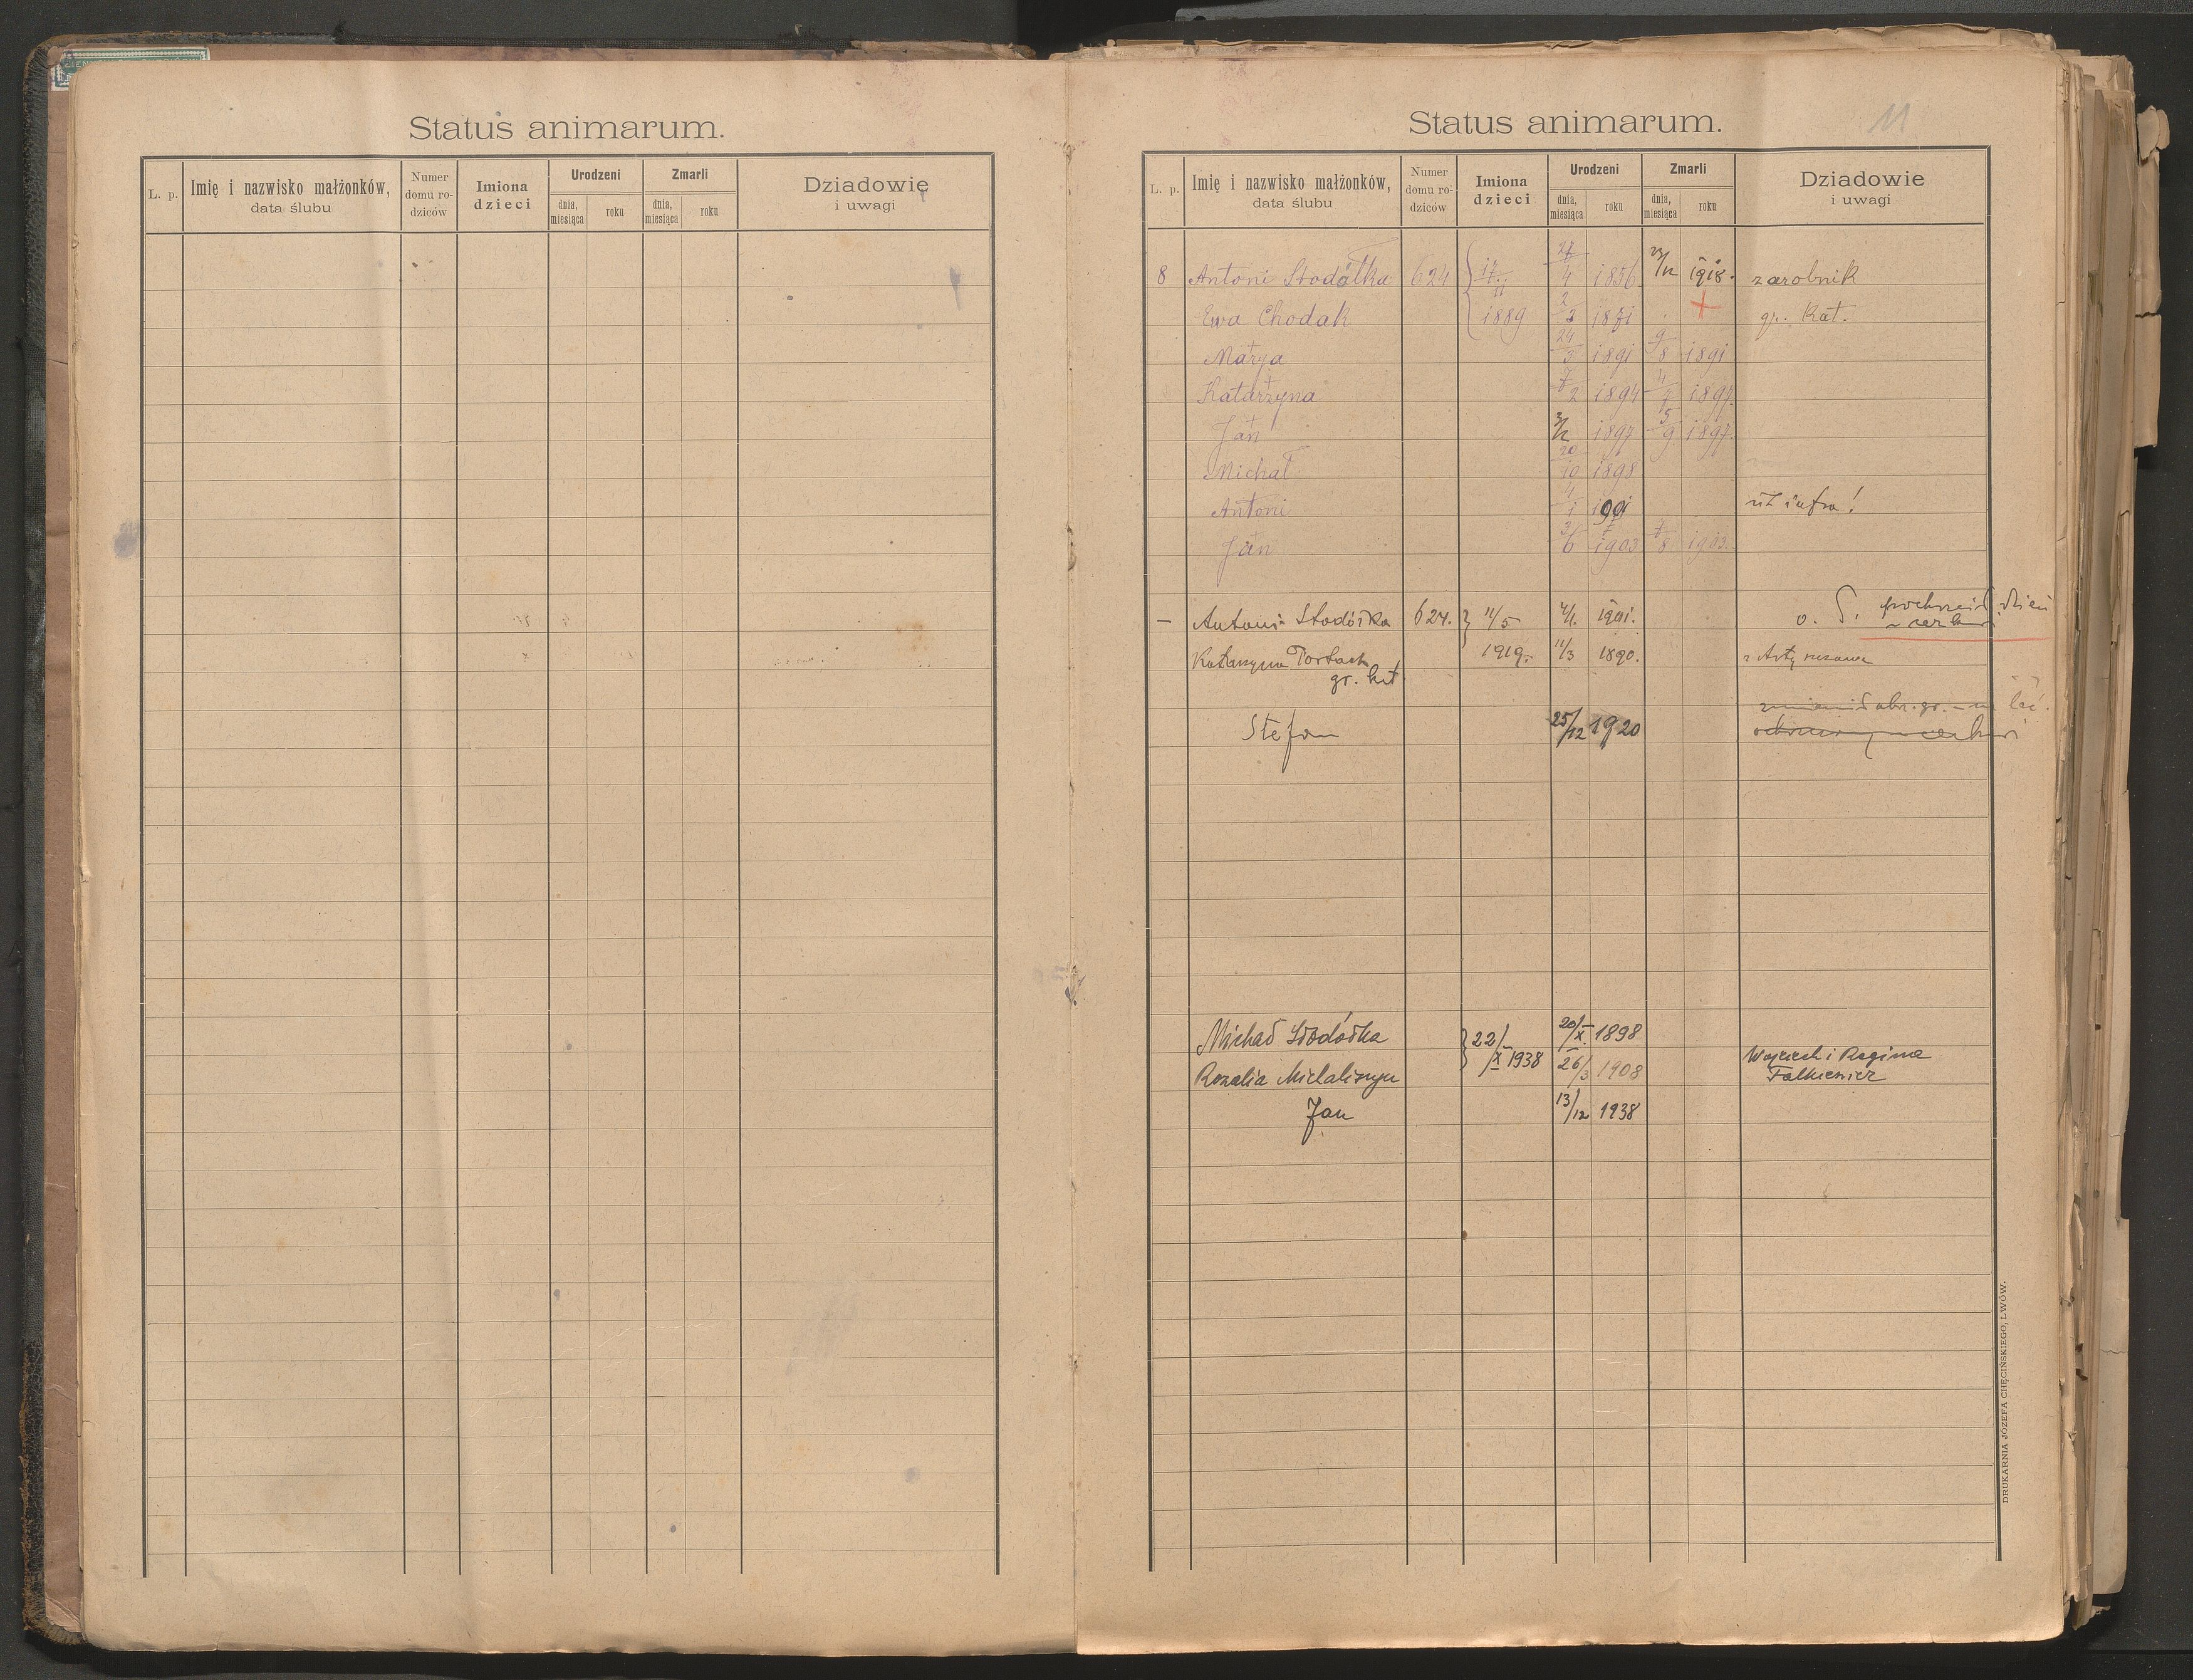 Status animarum.
L. p.
Imię i nazwisko małżonków,
data ślubu
Numer
domu ro-
dziców
Imiona
dzieci
Urodzeni
dnia,
miesiąca
roku
Zmarli
dnia,
miesiąca
roku
Dziadowie
i uwagi
Status animarum.
11
L. p.
Imię i nazwisko małżonków,
data ślubu
Numer
domu ro-
dziców
Imiona
dzieci
Urodzeni
dnia,
miesiąca
roku
Zmarli
dnia,
miesiąca
roku
Dziadowie
i uwagi
8 Antoni Stodółka 624 17/11 4 1856 1918. zarobnik
Ewa Chodak 1889 2 1871 + gr. Kat.
Marya 24/3 1891 9/8 1891
Katarzyna 2 1894 4 1894
Jan 1897 5/9 1897
Michał 20/10 1898
Antoni 4/1 1901 ut infra!
Jan 3/6 1903 8 1903.
– Antoni Stodółka 624. 11/5 4/1. 1901. o. S.
Katarzyna 1919. 11/3 1890.
gr. kat
Stefan 25/12 1920
Michał Stodółka 22/X 1938 20/X. 1898
Rozalia Michaliszyn 26/3 1908 Wojciech i Regina
Falkiewicz
Jan 13/12 1938
DRUKARNIA JÓZEFA CHĘCIŃSKIEGO, LWÓW.